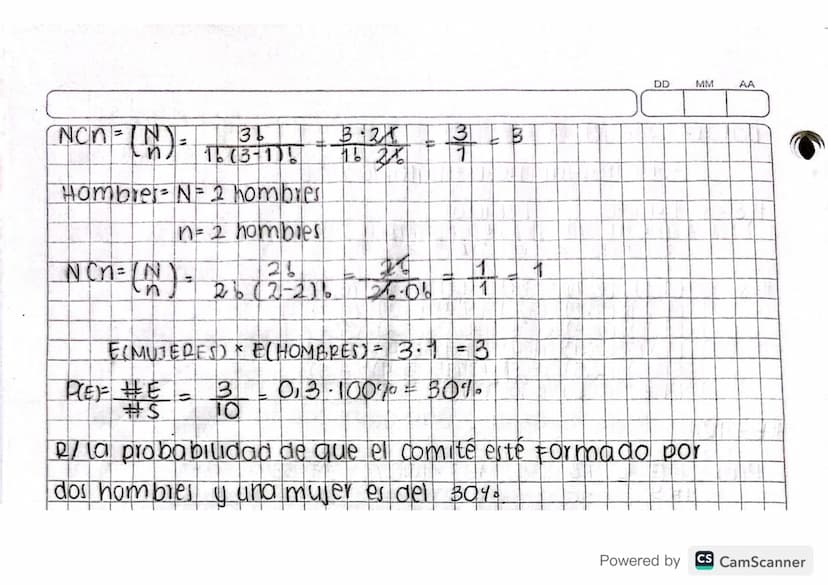 DD MM AA
NCn = (N n) = 3! / 1!(3-1)! = 3·2! / 1! 2! = 3/1 = 3
Hombres = N = 2 hombres
n = 2 hombres
NCn = (N n) = 2! / 2!(2-2)! = 2! / 2!·0! = 1/1 = 1
E(MUJERES) * E(HOMBRES) = 3·1 = 3
P(E) = #E / #S = 3/10 = 0,3·100% = 30%
R/ la probabilidad de que el comité esté formado por
dos hombres y una mujer es del 30%
Powered by CS CamScanner